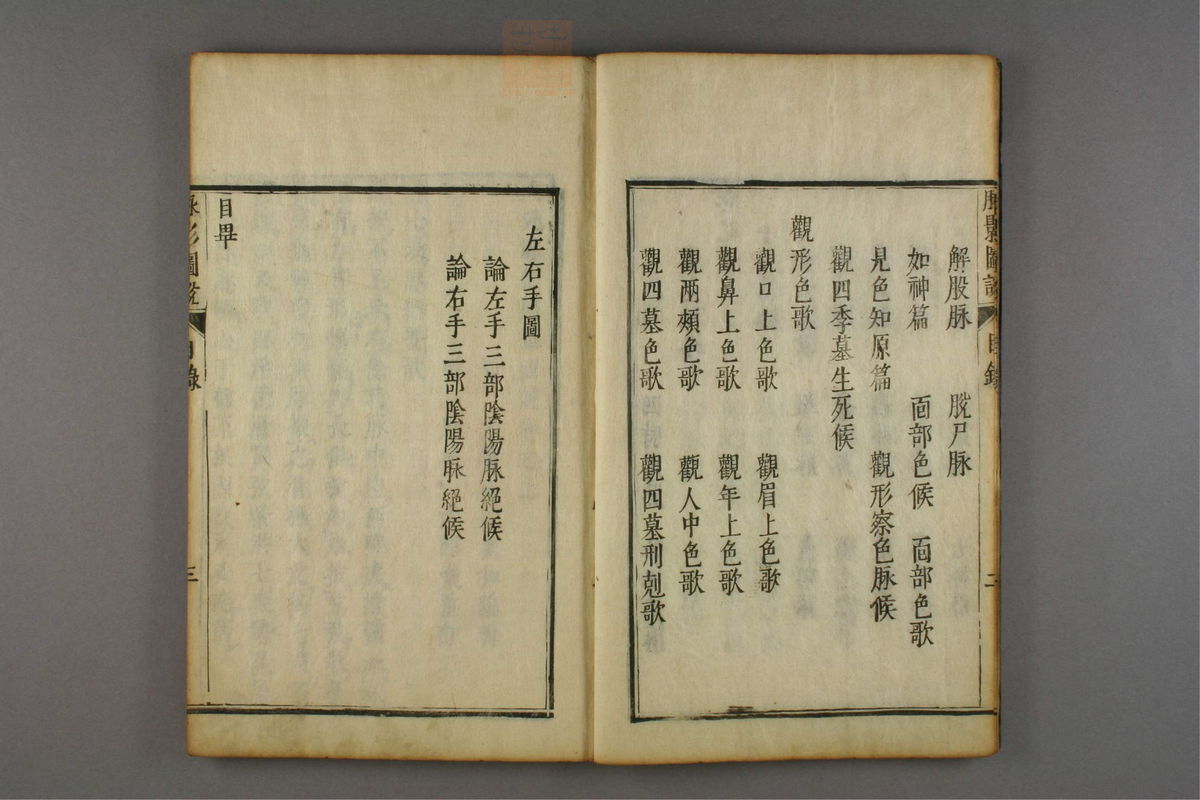 脉影圖說 目錄 二
解股脉 脫尸脉
如神篇 面部色候 面部色歌
見色知原篇 觀形察色脉候
觀四季墓生死候
觀形色歌
觀口上色歌 觀眉上色歌
觀鼻上色歌 觀年上色歌
觀兩頰色歌 觀人中色歌
觀四墓色歌 觀四墓刑剋歌
左右手圖
論左手三部陰陽脉絕候
論右手三部陰陽脉絕候
目畢
目錄 三